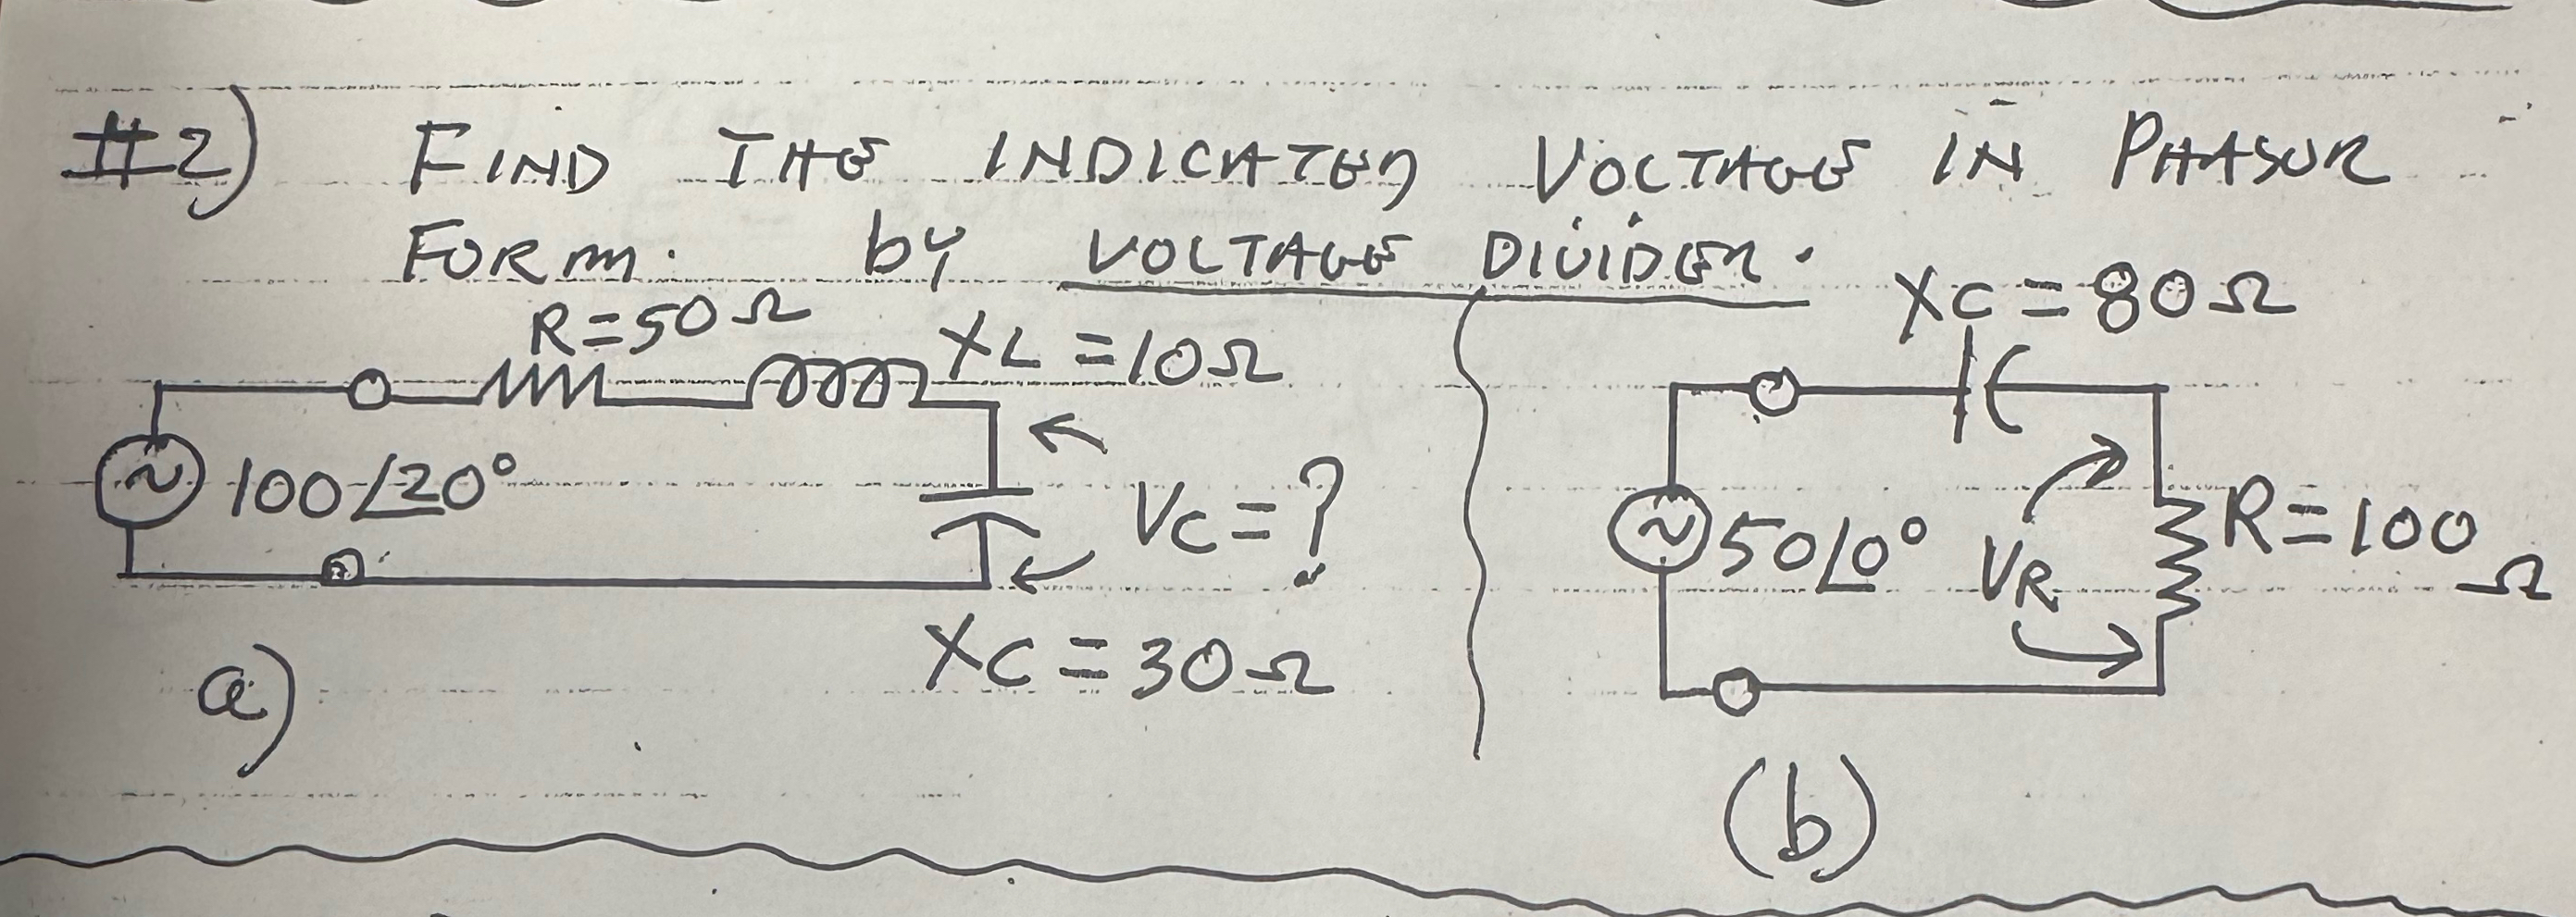 #2) FIND THE INDICATED VOLTAGE IN PHASOR
FORM. by VOLTAGE DIVIDER.
R=50Ω
XL=10Ω
100∠20°
VC=?
XC=30Ω
a)
XC=80Ω
50∠0°
VR
R=100
Ω
(b)